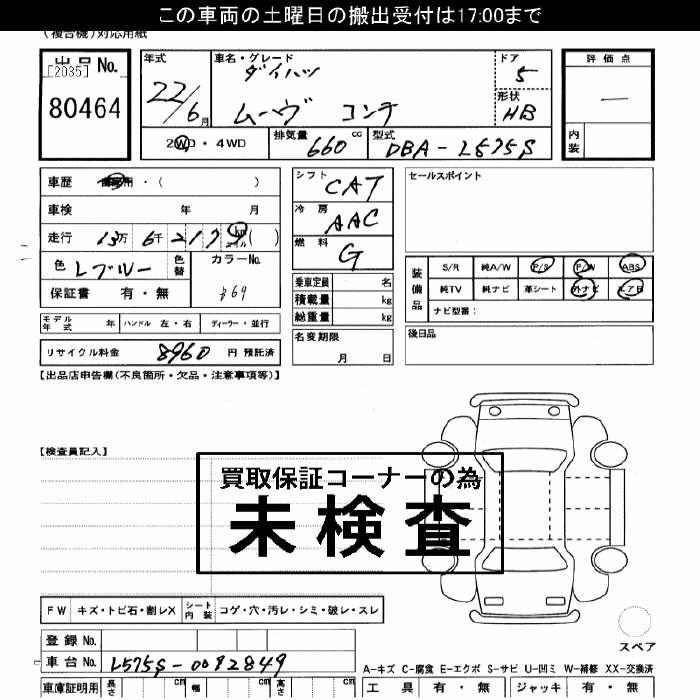 この車両の土曜日の搬出受付は17:00まで
(複合機)対応用紙
出品No. [2035]
80464
年式
22/6月
車名・グレード
ダイハツ
ムーヴ コンテ
ドア
5
形状
HB
評価点
—
内装
2WD・4WD
排気量
660cc
型式
DBA-L575S
車歴 ・( )
車検 年 月
走行 13万 6千 2179 km マイル ( )
色 Lブルー
色替
カラーNo.
保証書 有・無
シフト
CAT
冷房
AAC
燃料
G
乗車定員 名
積載量 kg
総重量 kg
セールスポイント
装備品
S/R 純A/W P/S P/W ABS
純TV 純ナビ 革シート 外ナビ エアB
ナビ型番:
モデル年式 年 ハンドル 左・右 ディーラー・並行
名変期限
月 日
後日品
リサイクル料金 8960 円 預託済
【出品店申告欄(不良箇所・欠品・注意事項等)】
【検査員記入】
買取保証コーナーの為
未検査
FW キズ・トビ石・割レX シート内装 コゲ・穴・汚レ・シミ・破レ・スレ
登録No.
車台No. L575S-0082849
スペア
A-キズ C-腐食 E-エクボ S-サビ U-凹ミ W-補修 XX-交換済
車庫証明用 長さ cm 幅 cm 高さ cm
工具 有・無 ジャッキ 有・無